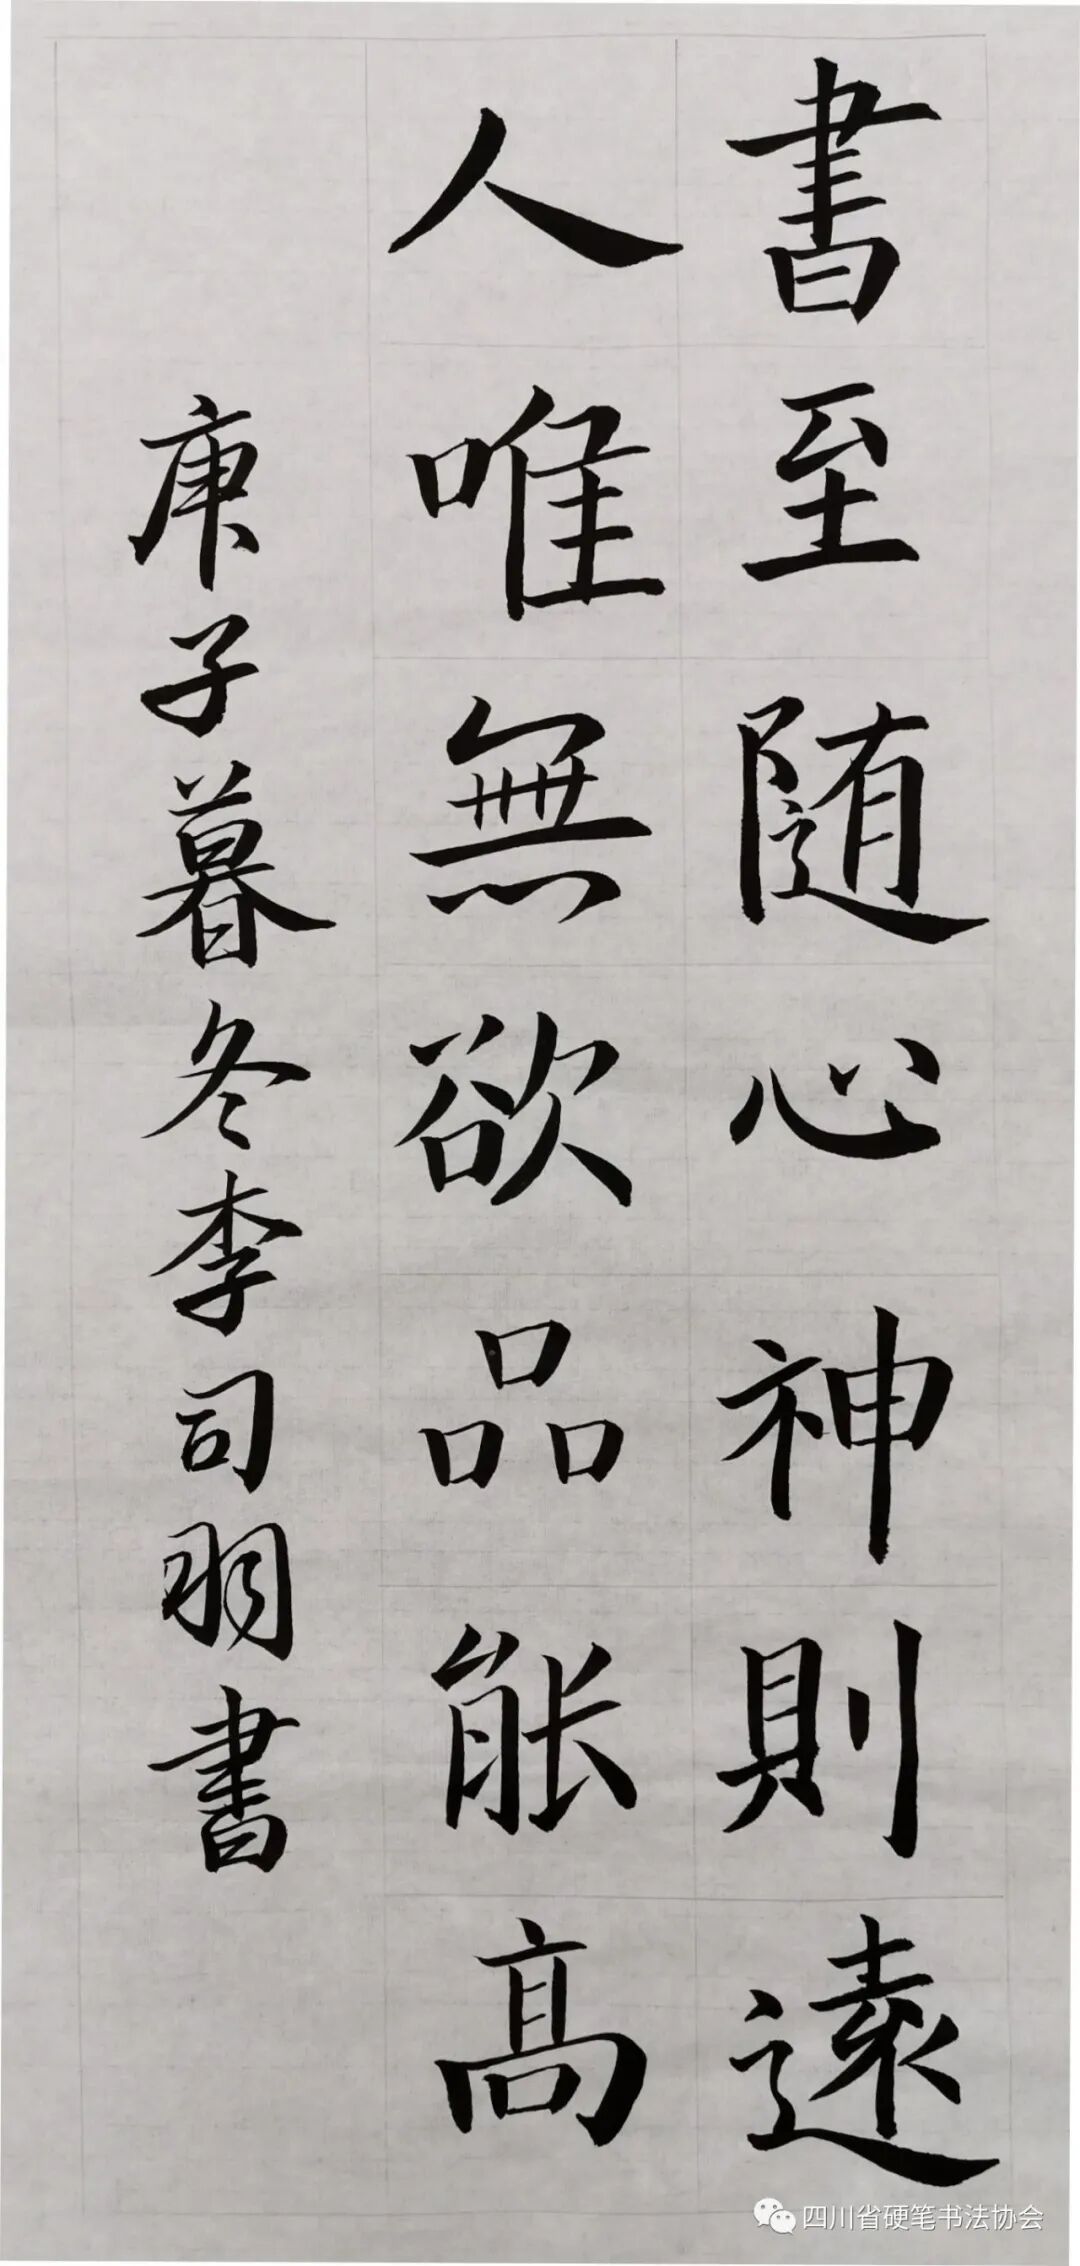 書至随心神則遠
人唯無欲品能高
庚子暮冬李司羽書
四川省硬笔书法协会